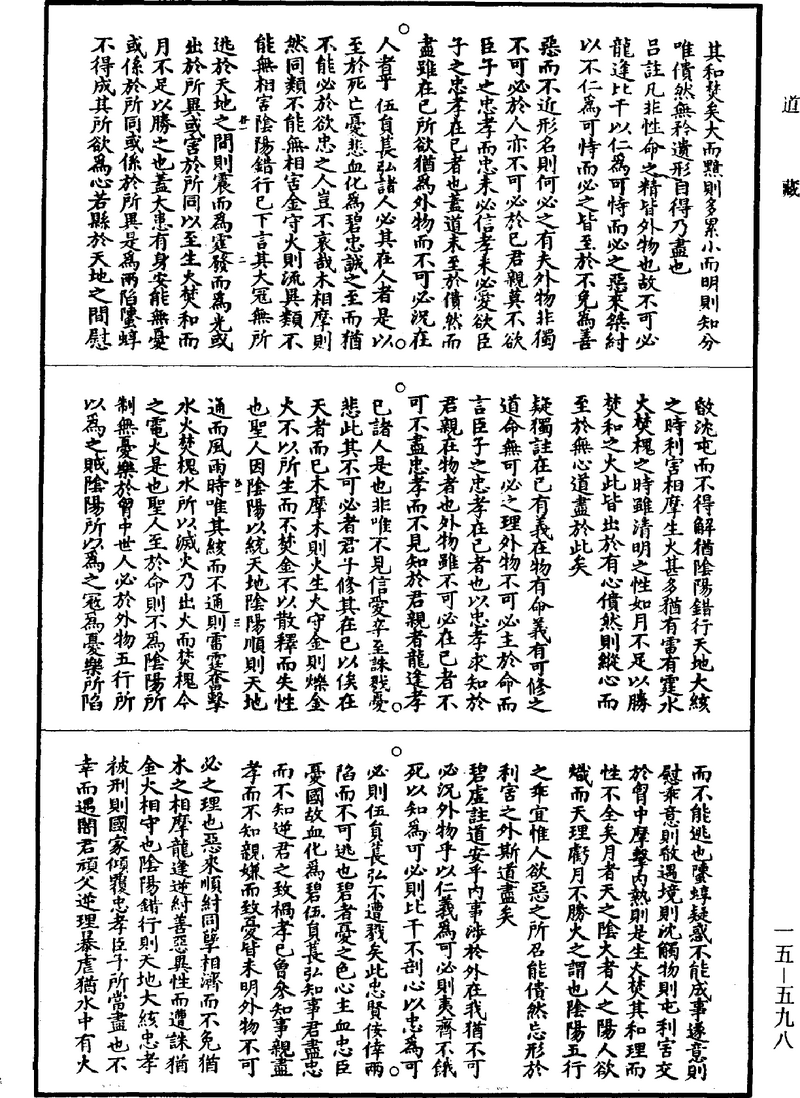 道藏
其和焚矣大而黯則多累小而明則知分
唯僓然無矜遺形自得乃盡也
呂註凡非性命之精皆外物也故不可必
龍逢比干以仁為可恃而必之惡來桀紂
以不仁為可恃而必之皆至於不免為善
惡而不近形名則何必之有夫外物非獨
不可必於人亦不可必於己君親莫不欲
臣子之忠孝而忠未必信孝未必愛欲臣
子之忠孝在己者也蓋道未至於僓然而
盡雖在己所欲猶為外物而不可必況在
人者乎伍員萇弘諸人必其在人者是以
至於死亡憂悲血化為碧忠誠之至而猶
不能必於欲忠之人豈不哀哉木相摩則
然同類不能無相害金守火則流異類不
能無相害陰陽錯行已下言其大冦無所
逃於天地之間則震而為霆發而為光或
出於所異或害於所同以至生火焚和而
月不足以勝之也蓋大患有身安能無憂
或係於所同或係於所異是為兩陷螴蜳
不得成其所欲為心若縣於天地之間慰
敃沈屯而不得解猶陰陽錯行天地大絯
之時利害相摩生火甚多猶有雷有霆水
火焚槐之時雖清明之性如月不足以勝
焚和之火此皆出於有心僓然則縱心而
至於無心道盡於此矣
疑獨註在己有義在物有命義有可修之
道命無可必之理外物不可必主於命而
言臣子之忠孝在己者也以忠孝求知於
君親在物者也外物雖不可必在己者不
可不盡忠孝而不見知於君親者龍逢孝
已諸人是也非唯不見信愛卒至誅戮憂
悲此其不可必者君子修其在己以俟在
天者而已木摩木則火生火守金則爍金
火不以所生而不焚金不以散釋而失性
也聖人因陰陽以統天地陰陽順則天地
通而風雨時唯其絃而不通則雷霆奮擊
水火焚槐水所以滅火乃出火而焚槐今
之電火是也聖人至於命則不為陰陽所
制無憂樂於胷中世人必於外物五行所
以為之賊陰陽所以為之冦為憂樂所陷
而不能逃也螴蜳疑惑不能成事遂意則
慰乖意則敃遇境則沈觸物則屯利害交
於胷中摩擊內熱則是生火焚其和理而
性不全矣月者天之陰火者人之陽人欲
熾而天理虧月不勝火之謂也陰陽五行
之乖宜惟人欲惡之所召能僓然忘形於
利害之外斯道盡矣
碧虛註道安乎內事涉於外在我猶不可
必況外物乎以仁義為可必則夷齊不餓
死以知為可必則比干不剖心以忠為可
必則伍員萇弘不遭戮矣此忠賢俟倖兩
陷而不可逃也碧者憂之色心主血忠臣
憂國故血化為碧伍員萇弘知事君盡忠
而不知逆君之致禍孝己曾參知事親盡
孝而不知親嫌而致憂皆未明外物不可
必之理也惡來順紂同孽相濟而不免猶
木之相摩龍逢逆紂善惡異性而遭誅猶
金火相守也陰陽錯行則天地大絃忠孝
被刑則國家傾覆忠孝臣子所當盡也不
幸而遇闇君頑父逆理暴虐猶水中有火
一五—五九八